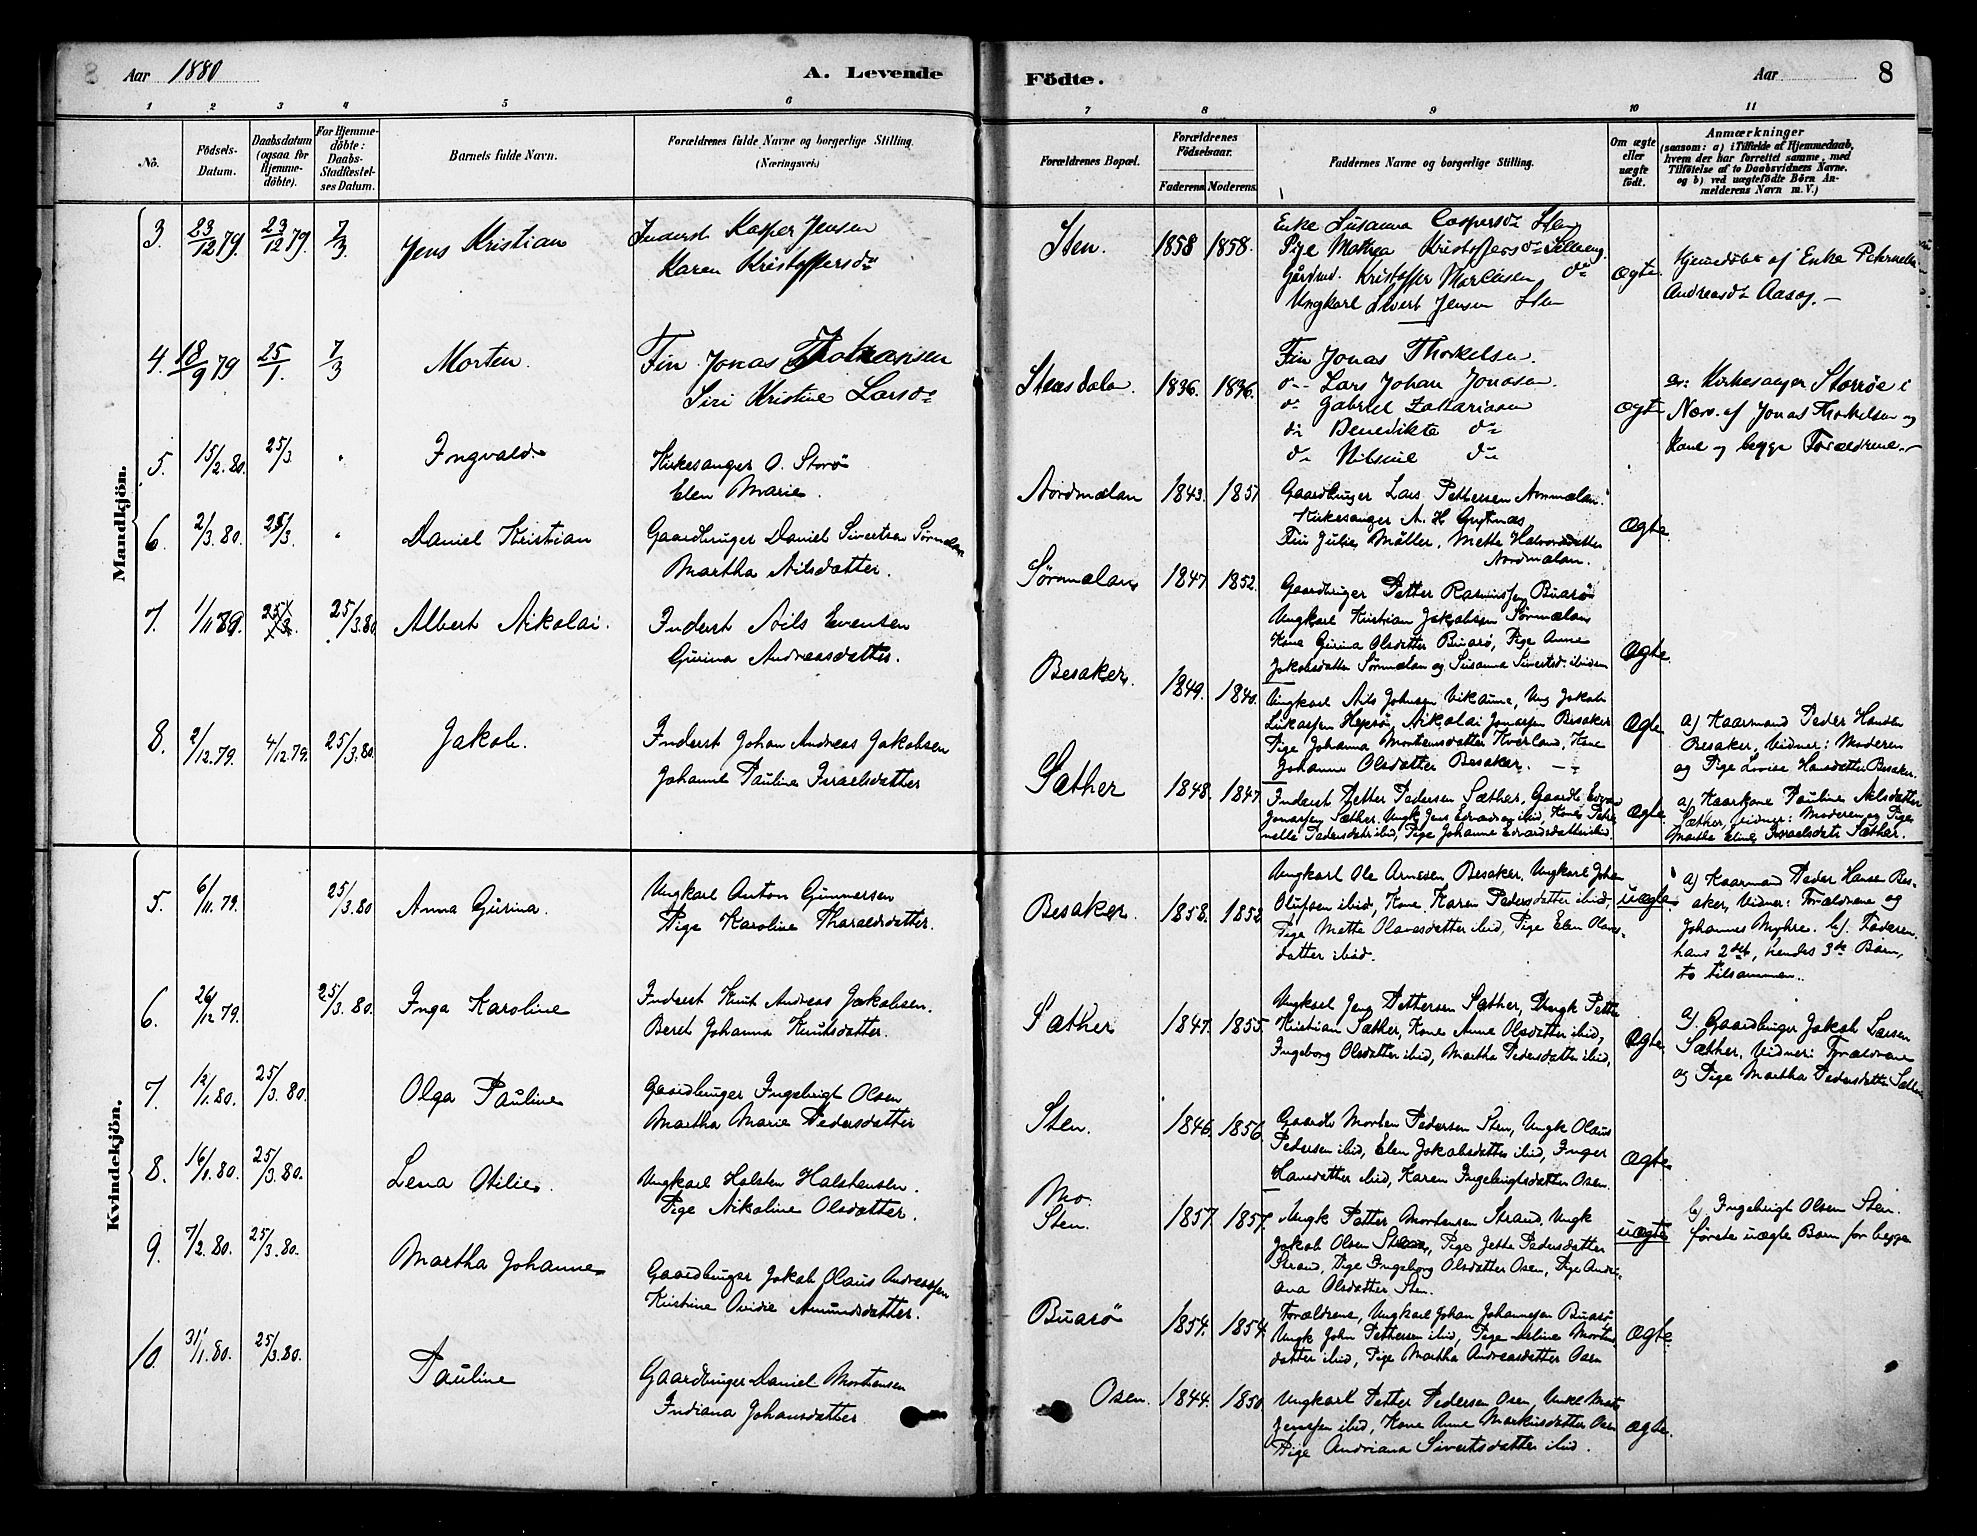 8 Aar 1880 A. Levende Födte. Aar 8
1 2 3 4 5 6 7 8 9 10 11
No.
Födsels-Datum.
Daabsdatum (ogsaa for Hjemme-döbte).
For Hjemme-döbte: Daabs-Stadfæstel-ses Datum.
Barnets fulde Navn.
Forældrenes fulde Navne og borgerlige Stilling
(Næringsvei.)
Forældrenes Bopæl.
Forældrenes Födselsaar.
Faderens. Moderens.
Faddernes Navne og borgerlige Stilling.
Om ægte eller uægte födt.
Anmærkninger
(saasom: a) i Tilfælde af Hjemmedaab,
hvem der har forrettet samme, med
Tilföielse af to Daabsvidners Navne.
og b) ved uægtefödte Börn An-
melderens Navn m. V.)
Mandkjön.
3. 23/12 79. 23/12 79. 7/3 Jens Kristian
Inderst Kasper Jensen
Karen Kristoffersdr
Sten. 1858 1858.
Enke Susanna Caspersdr Sten
Pige Kristoffersdr
Kristoffer dr
Ungkarl Sivert Jensen Sten
Ægte.
Hjemedöbt af Enke
Andreasdr
4. 18/9 79 25/1. 7/3 Morten.
Fin Jonas
Siri Kristine Larsdr
Stensdalen. 1836. 1836.
Fin Jonas Thorkelsen.
do Lars Johan Jonasen.
do Gabriel Zakariasen
do Benedikte do
do do
Ægte
a: Kirkesanger Storröe i
Nærv. af Jonas Thorkelsen og
Kone og begge Forældrene.
5. 15/2.80. 25/3. Ingvald.
Kirkesanger O. Storö
Elen Marie.
Nordmælan 1843. 1851.
Gaardbruger Lars Pettersen
Kirkesanger A. H. Grytnæs
Julie Möller, Mette Halvorsdatter
Nordmælan.
Ægte.
6. 2/3.80. 25/3. Daniel Kristian
Gaardbruger Daniel Sivertsen Sörmælan
Martha Nilsdatter.
Sörmælan 1847 1852.
Gaardbruger Petter Buarö
Ungkarl Kristian Jakobsen Sörmælan
Kone Gurina Olsdatter Buarö, Pige Anne
Jakobsdatter Sörmælan og Susanna Sivertsd. ibidem
Ægte.
7. 1/11 25/3. 25/3.80 Albert Nikolai.
Inderst Nils Evensen
Gurina Andreasdatter.
Besaker. 1849. 1840.
Ungkarl Nils Johnsen Vikanne, Ung. Jakob
Nikolai Jonassen Besaker
Pige Johanna Kone
Johanne Olsdatter Besaker.
Ægte
a) Kaarmand Peder Hansen
Besaker, Vidner: Moderen
og Pige Lovise Hansdatter Besaker.
8. 2/12.79. 4/12.79. 25/3.80. Jakob.
Inderst Johan Andreas Jakobsen
Johanne Pauline Israelsdatter
Sæther 1848. 1847.
Inderst Petter Pedersen Sæther, Gaardb.
Jonassen Sæther, Ungk. Jens ibid, Kone
Pedersdatr ibid, Pige Johanne Edvardsdatter ibid.
Ægte
a) Kaarkone Pauline Nilsdatter
Sæther, Vidner: Moderen og Pige
Martha Israelsdatr Sæther.
Kvindekjön.
5. 6/11.79. 25/3.80 Anna Gurina.
Ungkarl Anton Gunnersen
Pige Karoline Tharaldsdatter.
Besaker. 1858. 1852.
Ungkarl Ole Arnesen Besaker. Ungkarl Johan
Olufsen ibid, Kone Karen Pedersdatter ibid,
Pige Mette Olavesdatter ibid, Pige Elen Olaves-
datter ibid.
uægte
a) Kaarmand Peder Hansen Bes-
aker, Vidner: Forældrene og
Johannes Myhre. b). Faderen.
hans 2det, hendes 3de Barn,
to tilsammen.
6. 26/12 79. 25/3.80. Inga Karoline
Inderst Knut Andreas Jakobsen.
Beret Johanna Knutsdatter.
Sæther 1847. 1855.
Ungkarl Jens Pettersen Sæther, Ungk Petter
Kristian Sæther, Kone Anne Olsdatter ibid,
Ingeborg Olsdatter ibid, Martha Pedersdatter ibid,
Ægte.
a). Gaardbruger Jakob Larsen
Sæther, Vidner: Forældrene
og Pige Martha Pedersdatter Sæther
7. 12/1.80. 25/3.80. Olga Pauline
Gaardbruger Ingebrigt Olsen
Martha Marie Pedersdatter
Sten. 1846. 1856.
Gaardb Morten Pedersen Sten, Ungk Olaus
Pedersen ibid, Elen Jakobsdatter ibid, Inger
Hansdatter ibid, Karen Ingebrigtsdatter Osen.
Ægte
8. 16/1.80. 25/3.80. Lena Otilie.
Ungkarl Halsten Halstensen.
Pige Nikoline Olsdatter.
Mo.
Sten. 1857. 1857.
Ungk Petter Mortensen Strand, Ungk
Jakob Olsen Steen, Pige Jette Pedersdatter
Strand, Pige Ingeborg Olsdatter Osen, Pige Andri-
ana Olsdatter Sten.
uægte
b) Ingebrigt Olsen Sten.
förste uægte Barn for begge
9. 7/2.80. 25/3.80. Martha Johanne
Gaardbruger Jakob Olaus Andreassen
Kristine Ovidie Amundsdatter.
Buarö 1854. 1854.
Forældrene, Ungkarl Johan Johannesen Buarö
Ungk John Pettersen ibid, Pige Morten-
datter ibid, Pige Martha Andreasdatter Osen
Ægte.
10. 31/1.80. 25/3.80. Pauline
Gaardbruger Daniel Mortensen
Indiana Johansdatter
Osen. 1844. 1850.
Ungkarl Petter Pedersen Osen,
Jenssen ibid, Kone Anne Markusdatter Osen
Pige Andriana Sivertsdatter ibid.
Ægte.